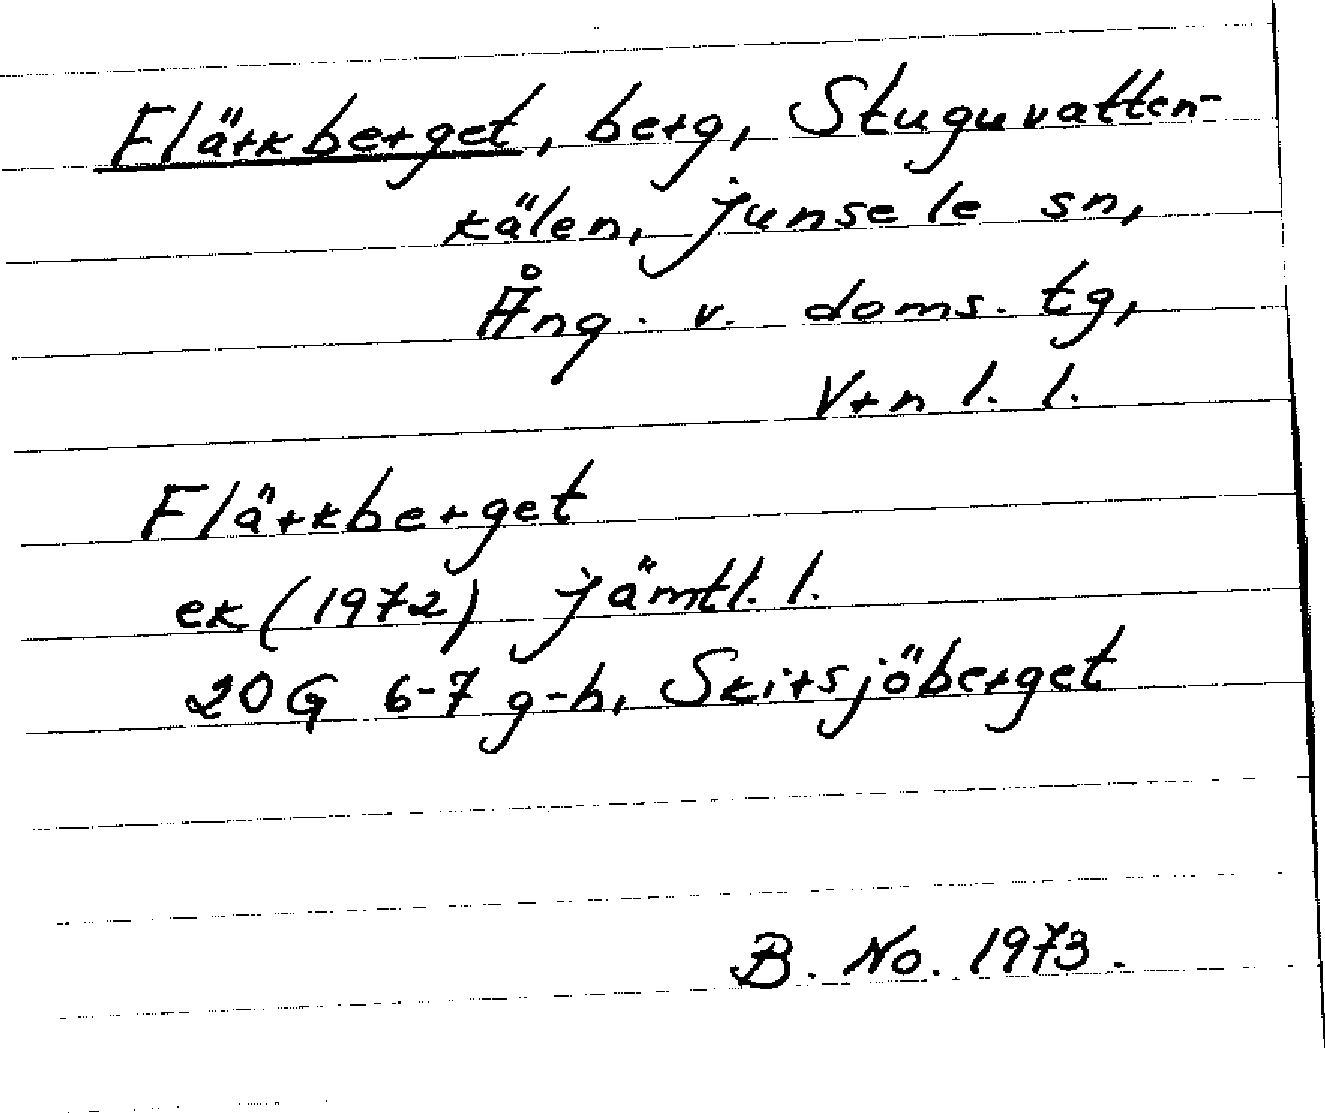 Flärkberget, berg, Stuguvatten-
kälen, Junsele sn,
Ång. v. doms. tg,
Vrn l. l.
Flärkberget
ek (1972) Jämtl. l.
20G 6-7 g-h, Skirsjöberget
B. No. 1973.